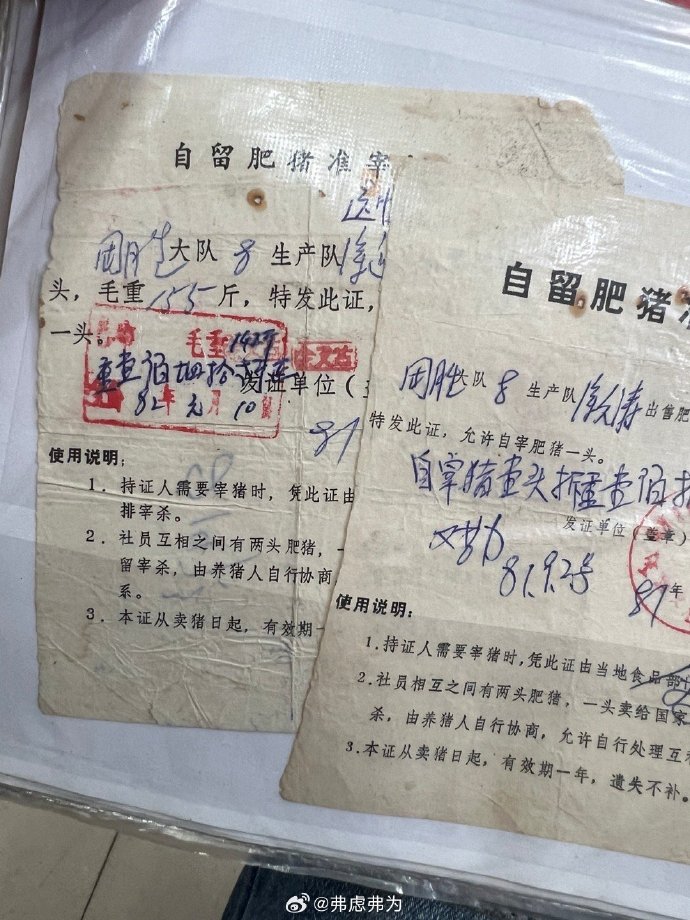 自留肥猪准宰
大队 8 生产队
头，毛重 155 斤，特发此证，
一头。
毛重
发证单位（
82 年 元 月 10
81
使用说明：
1．持证人需要宰猪时，凭此证由
排宰杀。
2．社员互相之间有两头肥猪，一
留宰杀，由养猪人自行协商
系。
3．本证从卖猪日起，有效期一
自留肥猪准
大队 8 生产队 出售肥
特发此证，允许自宰肥猪一头。
自宰猪壹头 重壹佰
发证单位（盖章）
81.9.25
81 年
使用说明：
1.持证人需要宰猪时，凭此证由当地食品部
2.社员相互之间有两头肥猪，一头卖给国家
杀，由养猪人自行协商，允许自行处理互
3.本证从卖猪日起，有效期一年，遗失不补。
@弗虑弗为